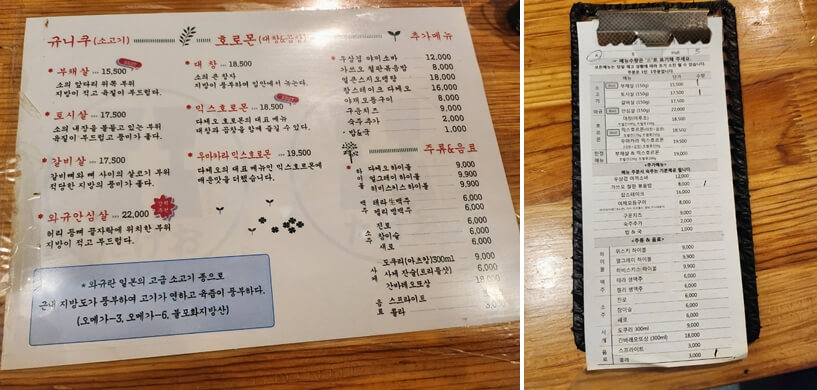 규니쿠(소고기)
부채살 ... 15,500
소의 앞다리 위쪽 부위
지방이 적고 육질이 부드럽다.
토시살 ... 17,500
소의 내장을 붙들고 있는 부위
육질이 부드럽고 풍미가 좋다.
갈비살 ... 17,500
갈비뼈와 뼈 사이의 살코기 부위
적당한 지방의 풍미가 좋다.
와규안심살 ... 22,000
허리 등뼈 끝자락에 위치한 부위
지방이 적고 부드럽다.
호로몬(대창&곱창)
대창 ... 18,500
소의 큰 창자
지방이 풍부하며 입안에서 녹는다.
믹스호로몬 ... 18,500
다베오 호로몬의 대표 메뉴
대창과 곱창을 함께 즐길 수 있다.
우마카라 믹스호로몬 ... 19,500
다베오의 대표 메뉴인 믹스호로몬에
매운맛을 더했습니다.
* 와규란 일본의 고급 소고기 종으로
근내 지방도가 풍부하여 고기가 연하고 육즙이 풍부하다.
(오메가-3, 오메가-6, 불포화지방산)
추가메뉴
우삼겹 마끼소바 12,000
가쓰오 철판볶음밥 8,000
찹스테이크 다베오 16,000
야채모듬구이 8,000
구운치즈 9,000
숙주추가 2,000
밥&국 1,000
주류&음료
하이볼
다베오 하이볼 9,000
얼그레이 하이볼 9,900
히비스커스 하이볼 9,900
맥주
테라 생맥주
켈리 병맥주
소주
진로
참이슬
새로
사케
도쿠리(야츠캉)300ml 9,000
사케 잔술(도리플샷) 6,000
간바레오또상
음료
스프라이트
콜라
메뉴수량은 표기해 주세요.
주문은 1인 1주문입니다.
메뉴 단가 수량
소고기
Best 부채살 (150g) 15,500
Best 토시살 (150g) 17,500
갈비살 (150g) 17,500
안심살 (150g) 22,000
호로몬
Best 믹스호로몬 18,500
우마카라 믹스호로몬 19,500
한정메뉴
부채살 & 믹스호로몬 19,000
<추가메뉴>
메뉴 주문시 숙주는 기본제공 됩니다.
우삼겹 마끼소바 12,000
가쓰오 철판 볶음밥 8,000
찹스테이크 16,000
야채모듬구이 8,000
구운치즈 9,000
숙주추가 2,000
밥 & 국 1,000
<주류 & 음료>
하이볼
위스키 하이볼 9,000
얼그레이 하이볼 9,900
하비스커스 하이볼 9,900
맥주
테라 생맥주 6,000
켈리 병맥주 6,000
소주
진로 6,000
참이슬 6,000
새로 6,000
사케
도쿠리 300ml 9,000
간바레오또상 (300ml) 18,000
음료
스프라이트 3,000
콜라 3,000